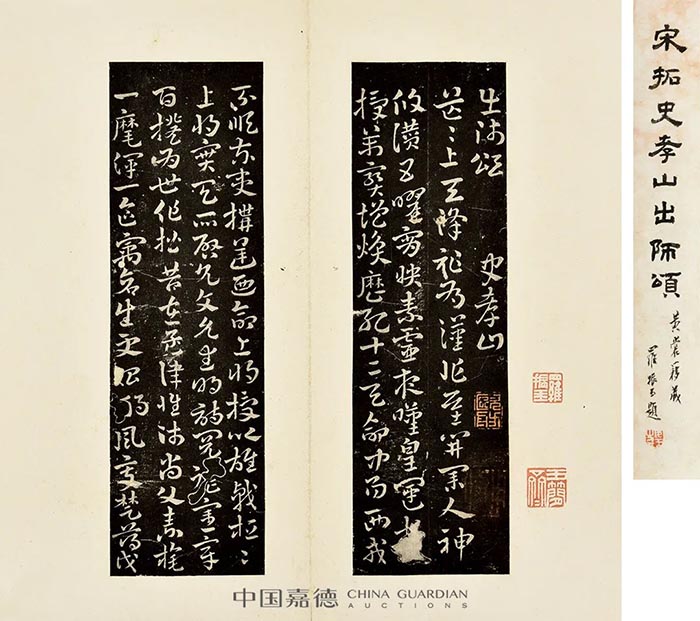 宋拓史孝山出師頌
羅振玉題
出師頌 史孝山
茫〻上天降祚為漢作基開業人神
攸讚五曜霄映素靈夜嘆皇運
授萬寶增煥歷紀十二天命中易西戎
不順東夷構逆乃命上將授以雄戟桓〻
上將實天所啟允文允武明詩閱禮憲章
百揆為世作楷昔在孟津惟師尚父素旄
一麾渾一區宇蒼生更始朔風變楚薄伐
羅振玉
中国嘉德 CHINA GUARDIAN
AUCTIONS